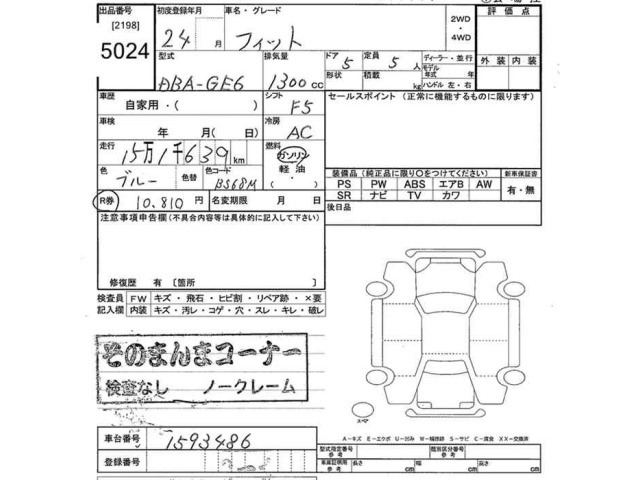 出品番号 初度登録年月 車名・グレード 2WD 評価点
[2198] 24 月 フィット ・
5024 4WD
型式 排気量 ドア 5 定員 5 人 ディーラー・並行 外装 内装
DBA-GE6 1300 cc 形状 積載 kg モデル年式 年
ハンドル 左・右
車歴 シフト F5 セールスポイント(正常に機能するものに限ります)
自家用・( )
車検 年 月( 日) 冷房 AC
走行 15万1千639 km 燃料 ガソリン
軽油
・( )
色 ブルー 色替 色コード B568M
装備品(純正品に限り〇をつけてください) 新車保証書
PS PW ABS エアB AW 有・無
SR ナビ TV カワ
R券 10,810 円 名変期限 月 日 後日品
注意事項申告欄(不具合内容等は具体的に記入して下さい)
修復歴 有 〔箇所 〕
検査員 FW キズ・飛石・ヒビ割・リペア跡・×要
記入欄 内装 キズ・汚レ・コゲ・穴・スレ・キレ・破レ
そのまんまコーナー
検査なし ノークレーム
スペアー
A-キズ E-エクボ U-凹み W-補修跡 S-サビ C-腐食 XX-交換済
車台番号 1593486
登録番号
型式指定番号 参考 類別区分番号 参考
車庫証明用 参考 長さ cm 幅 cm 高さ cm